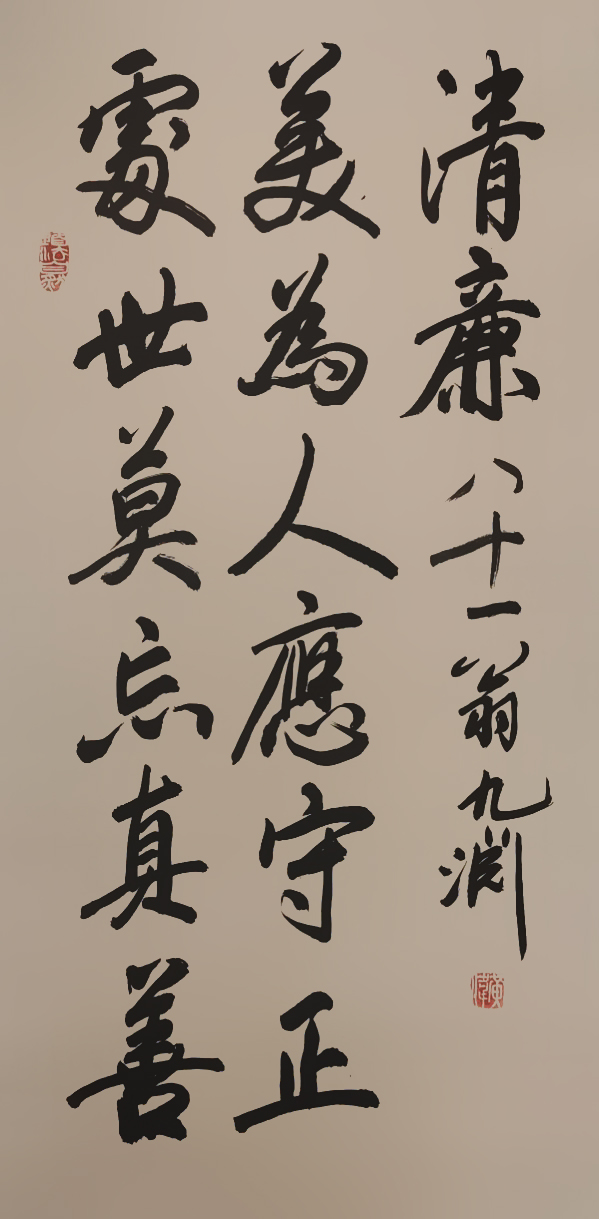 處世莫忘真善
美為人應守正
清廉 八十一翁九淵